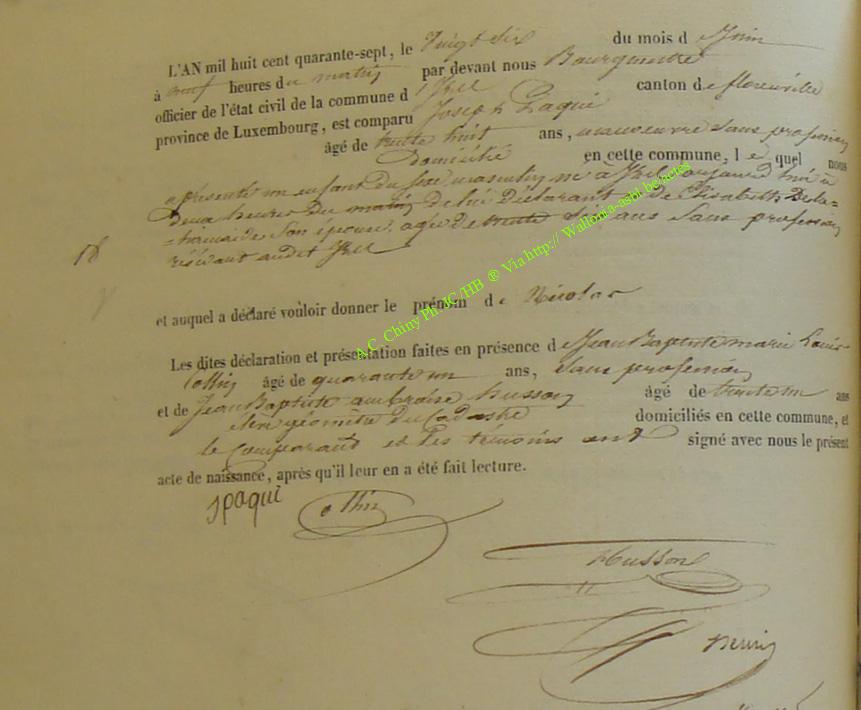 L'AN mil huit cent quarante-sept, le Vingt Six du mois de Juin
à neuf heures du matin par devant nous Bourgmestre
officier de l'état civil de la commune d'Izel canton de florenville
province de Luxembourg, est comparu Joseph Paqui
âgé de trente huit ans, manoeuvre sans profession
Domicilié en cette commune, lequel nous
a présenté un enfant du sexe masculin né à Izel aujourd'hui à
Deux heures du matin de lui Déclarant et de Elisabeth Dela-
-hamaide Son épouse agée de trente Six ans Sans profession
résidant audit Izel
18
et auquel a déclaré vouloir donner le prénom de Nicolas
Les dites déclaration et présentation faites en présence de Jean Baptiste marie Louis
Collin âgé de quarante un ans, Sans profession
et de Jean Baptiste ambroise husson âgé de trente un ans
géomètre Du Cadastre domiciliés en cette commune, et
le Comparant et les témoins ont signé avec nous le présent
acte de naissance, après qu'il leur en a été fait lecture.
J paqui
Husson
A.C. Chiny Ph. JC/HB ® Via http:// Wallonia-asbl.be/actes